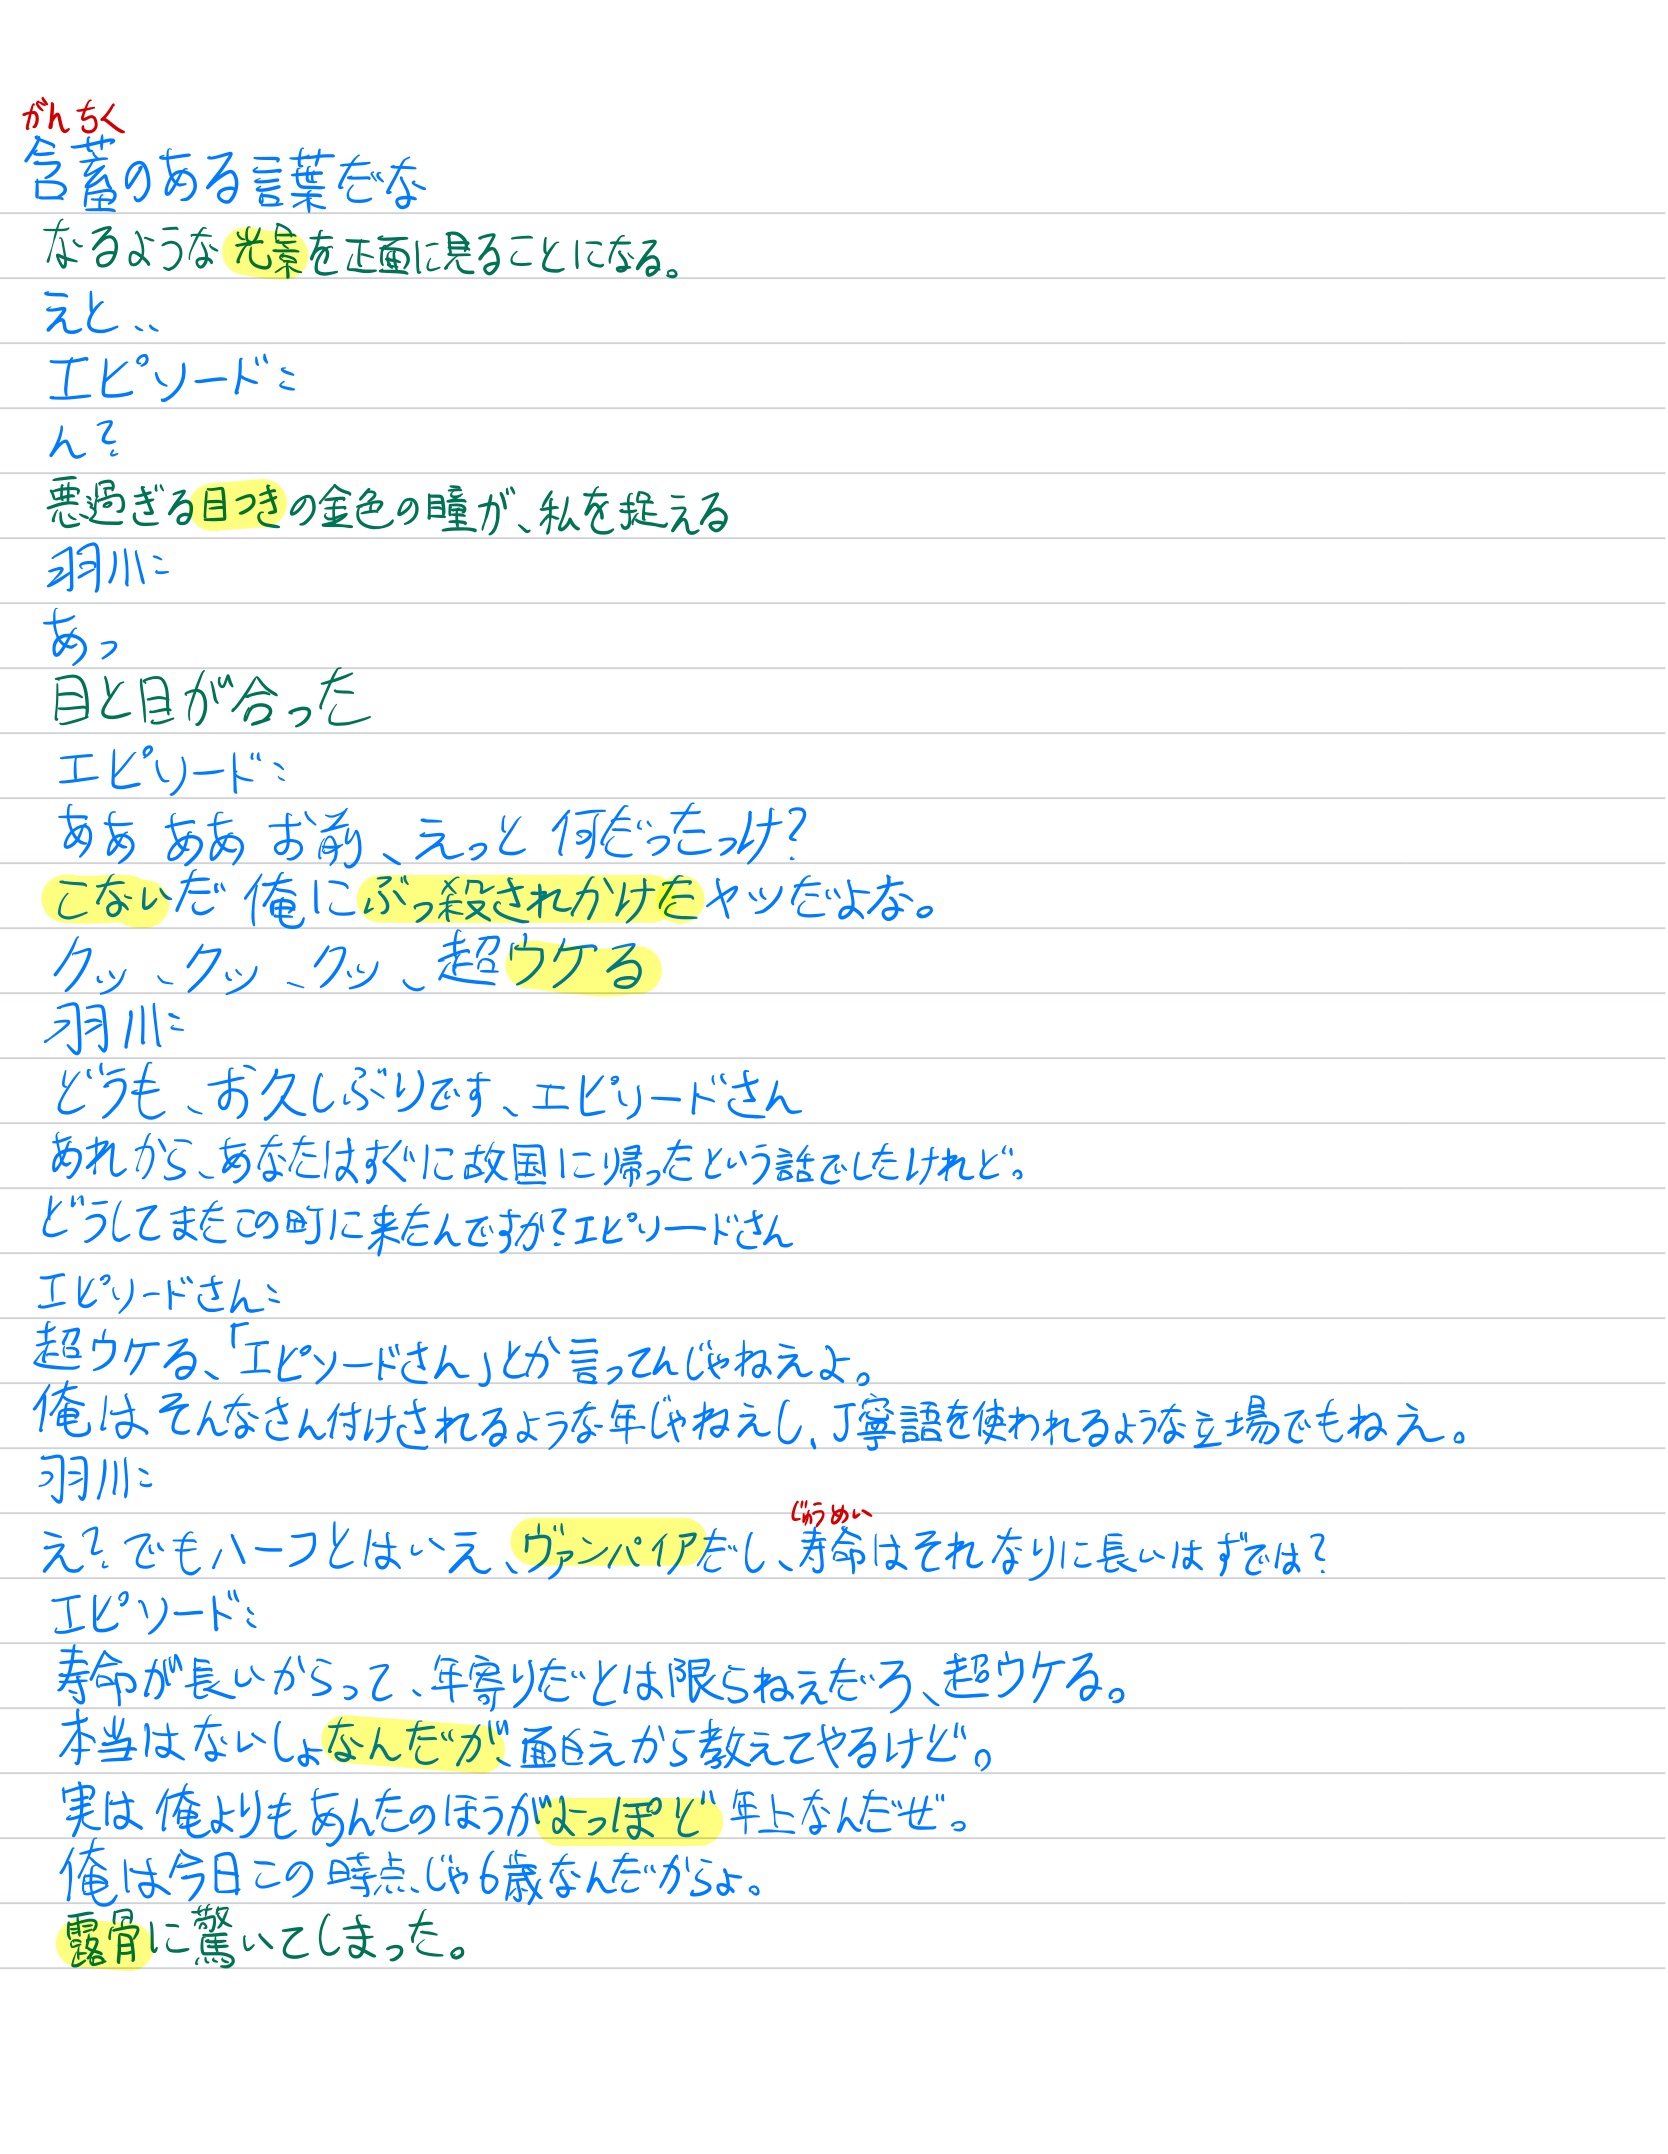 がんちく
含蓄のある言葉だな
なるような光景を正面に見ることになる。
えと、、
エピソード：
ん？
悪過ぎる目つきの金色の瞳が、私を捉える
羽川：
あっ
目と目が合った
エピソード：
ああ ああ お前、えっと 何だったっけ？
こないだ俺にぶっ殺されかけたヤツだよな。
クッ、クッ、クッ、超ウケる
羽川：
どうも、お久しぶりです、エピソードさん
あれから、あなたはすぐに故国に帰ったという話でしたけれど。
どうしてまたこの町に来たんですか？エピソードさん
エピソードさん：
超ウケる、「エピソードさん」とか言ってんじゃねえよ。
俺はそんなさん付けされるような年じゃねえし、丁寧語を使われるような立場でもねえ。
羽川：
じゅうめい
え？でもハーフとはいえ、ヴァンパイアだし、寿命はそれなりに長いはずでは？
エピソード：
寿命が長いからって、年寄りだとは限らねえだろ、超ウケる。
本当はないしょなんだが、面白えから教えてやるけど。
実は俺よりもあんたのほうがよっぽど年上なんだぜ。
俺は今日この時点じゃ6歳なんだからよ。
露骨に驚いてしまった。